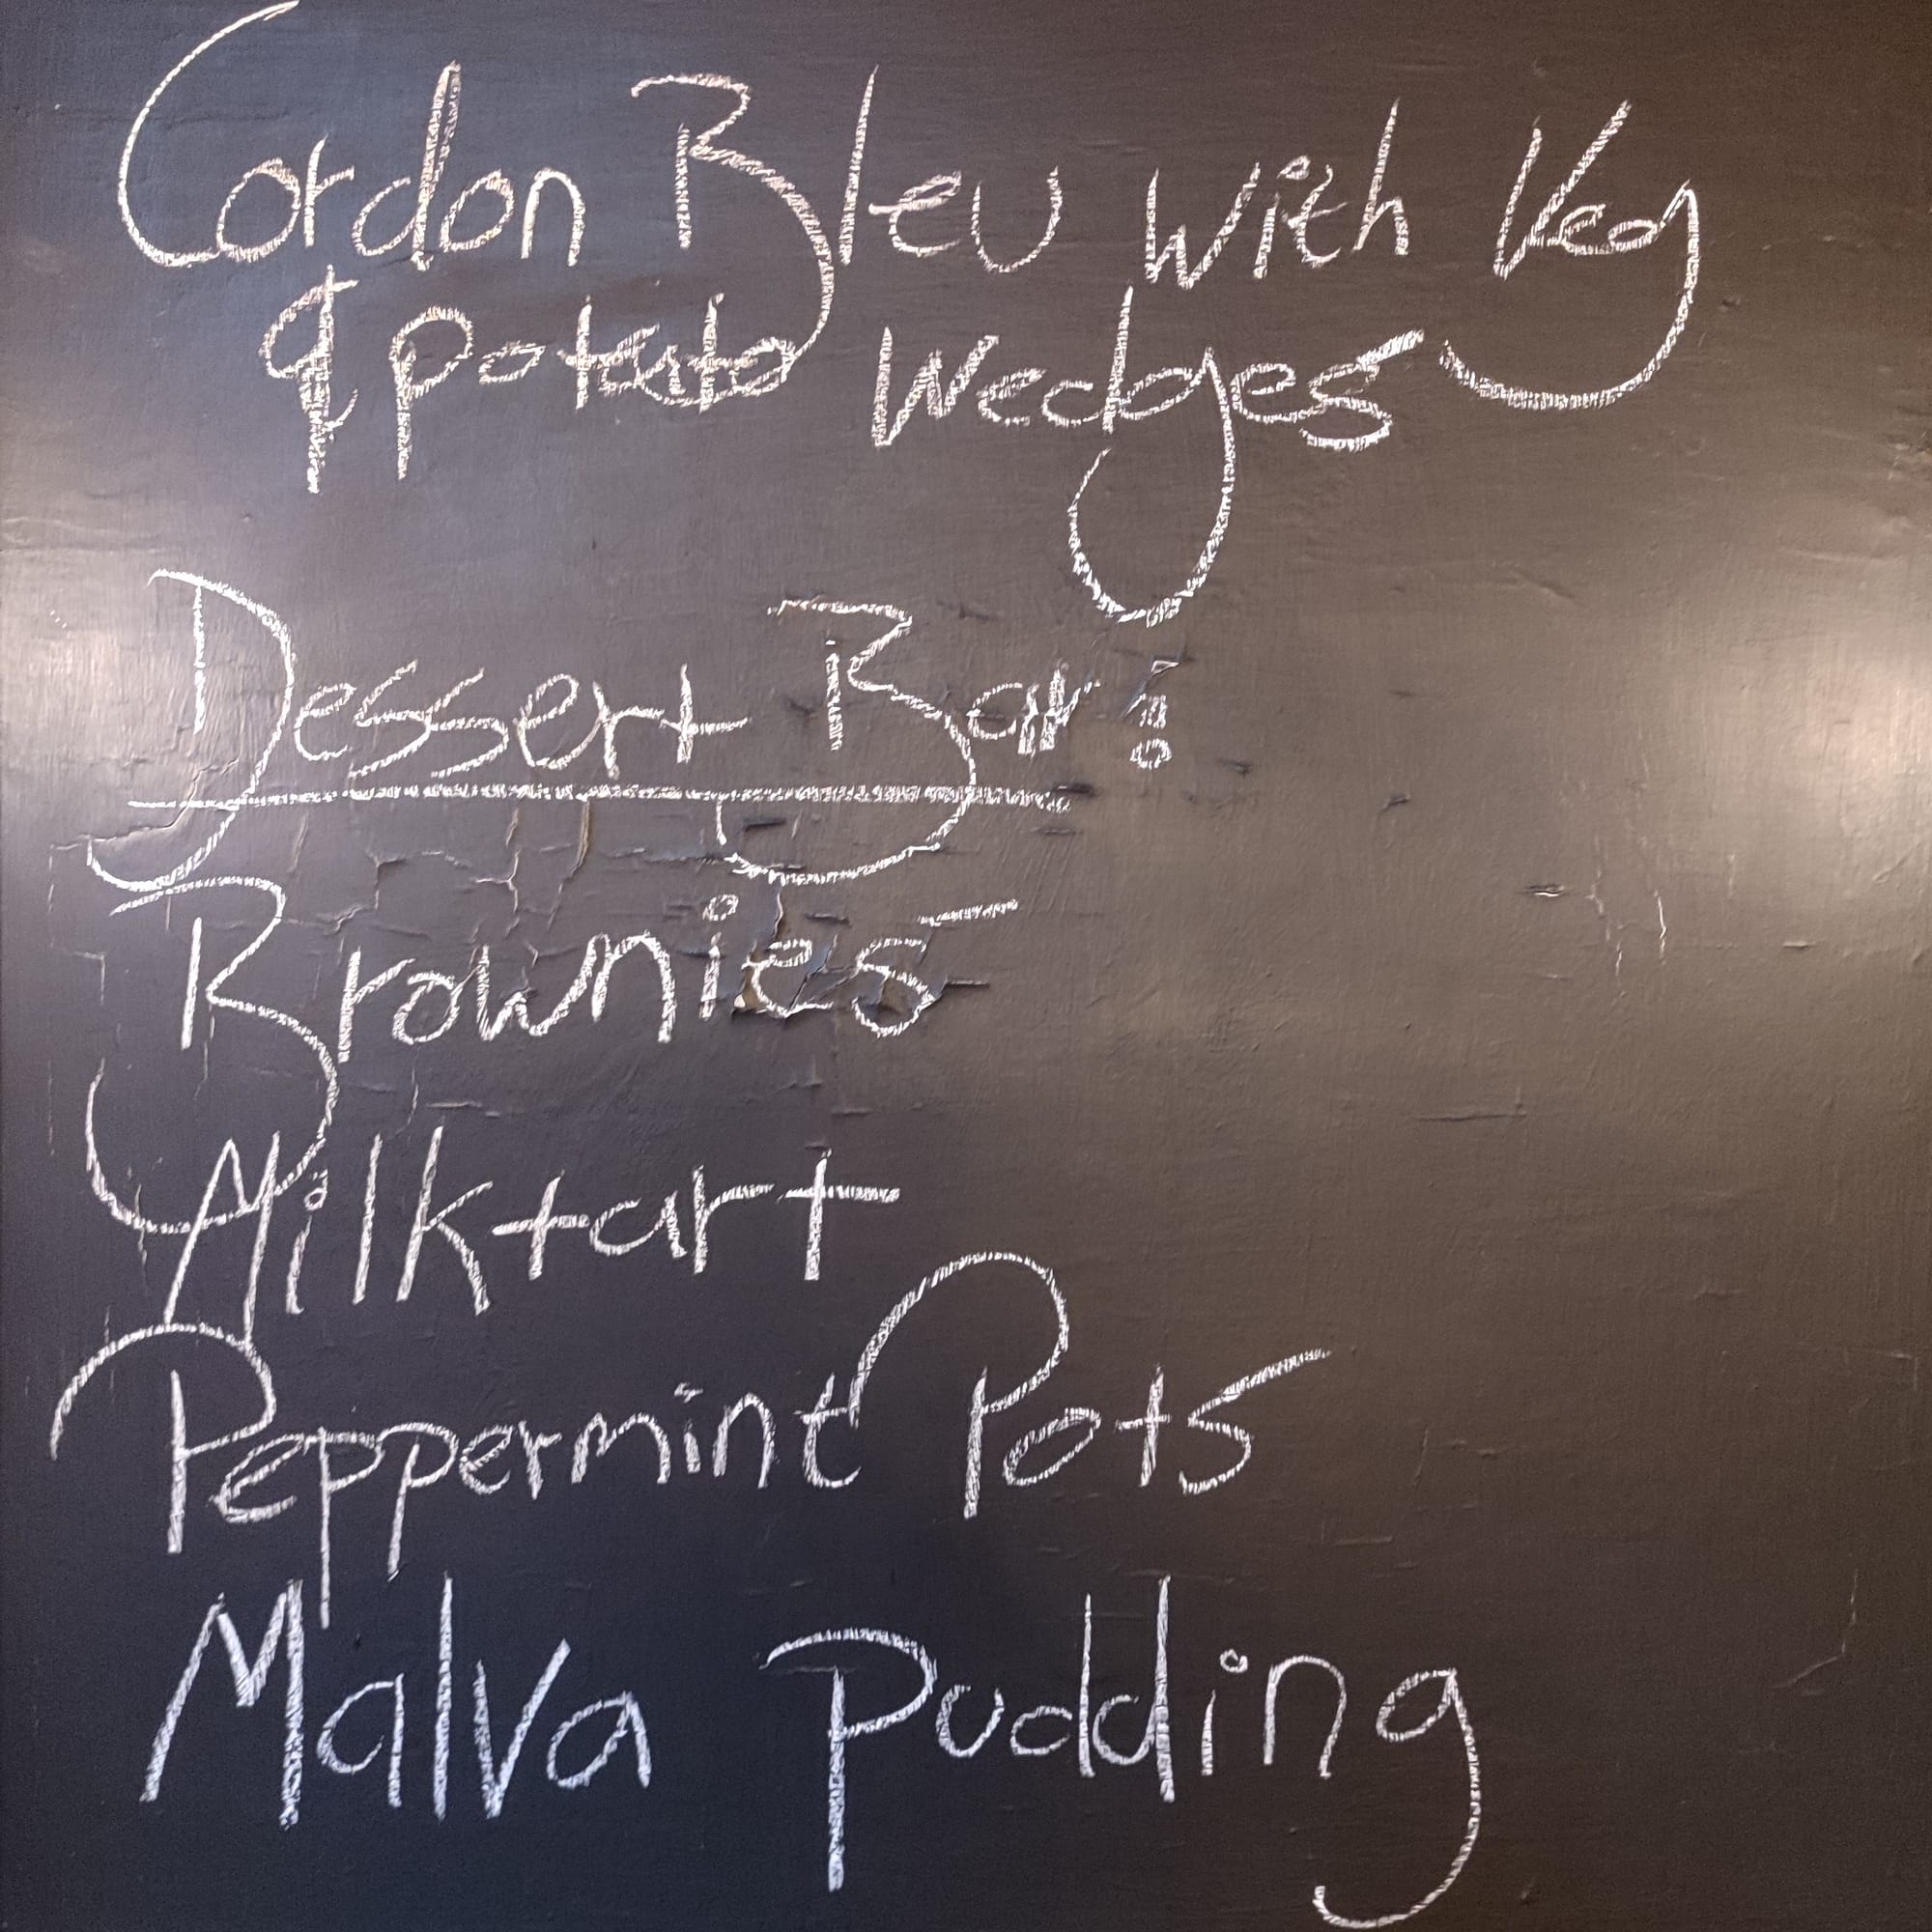 Cordon Bleu with Veg
& potato Wedges
Dessert Bar!
Brownies
Milktart
Peppermint Pots
Malva Pudding